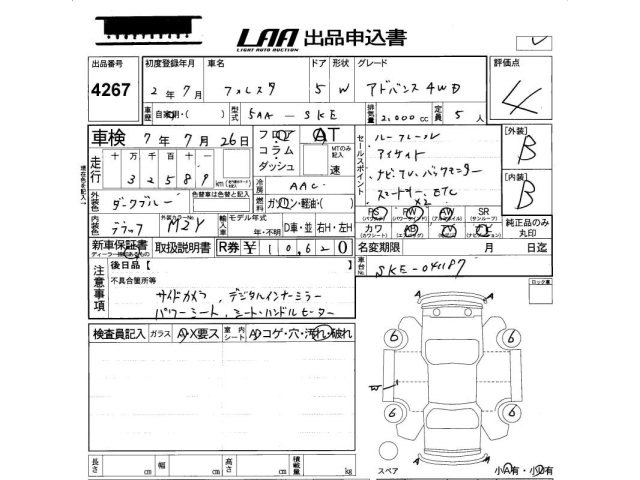 LAA 出品申込書
LIGHT AUTO AUCTION
出品番号 初度登録年月 車名 ドア 形状 グレード 評価点
4267 2年7月 フォレスタ 5 W アドバンス4WD 4
車歴 自家用・( ) 型式 5AA-SKE 排気量 2,000cc 定員 5人
車検 7年7月26日 フロア AT
コラム MTのみ記入
ダッシュ 速
セールスポイント ルーフレール
アイサイト
ナビ・TV、バックモニター
スマートキー、ETC
×2
[外装] B
[内装] B
現在色を記入
走行 十万千百十一
32589 km
冷房 AAC
外装色 ダークブルー 色替車は色替と記入 燃料 ガソリン・軽油・( )
内装色 ブラック 外装カラーNo. M2Y 輸入車 モデル年式 年・不明 D車・並 右H・左H
PS PW AW SR
(パワステ) (パワーウインド) (アルミホイル) (サンルーフ)
カワ AB TV ナビ
(カワシート) (エアバッグ) (テレビ) (ナビゲーション)
純正品のみ丸印
新車保証書 取扱説明書 R券 ¥10,620 名変期限 月 日迄
ディーラー捺印あるもの
車台No. SKE-041187
注意事項 後日品【
不具合箇所等
サイドカメラ、デジタルインナーミラー
パワーシート、シート・ハンドルヒーター
ロック車
検査員記入 ガラス A・X要ス 室内シート A・コゲ・穴・汚れ・破れ
A A
6 6
W
6 6
A A
長さ cm 幅 cm 高さ cm 積載量 kg
スペア 小A有・小U有